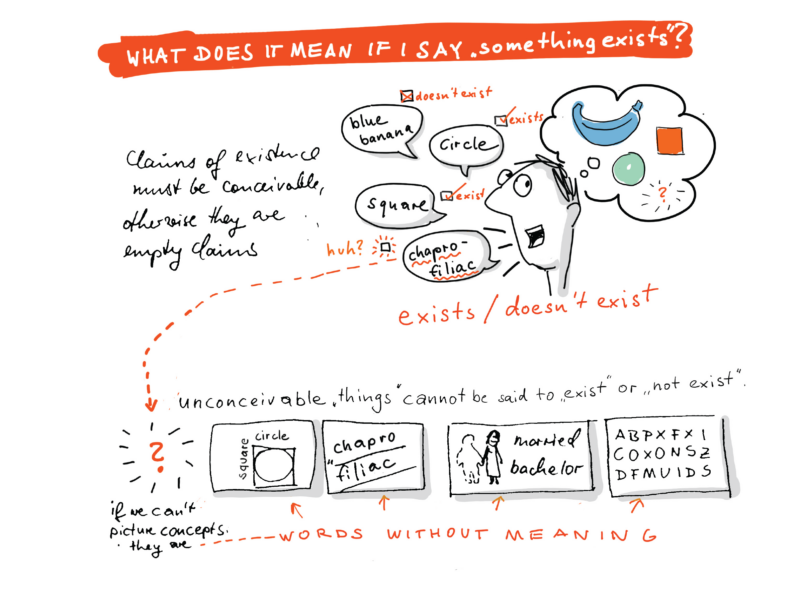 WHAT DOES IT MEAN IF I SAY „something exists"?
doesn't exist
blue
banana
exists
circle
Claims of existence
must be conceivable,
otherwise they are
empty claims
square
exist
huh?
chapro-
filiac
?
exists / doesn't exist
unconceivable „things" cannot be said to „exist" or „not exist".
?
square
circle
chapro
"filiac
married
bachelor
ABPXFXI
COXONSZ
DFMUIDS
if we can't
picture concepts.
they are
WORDS WITHOUT MEANING